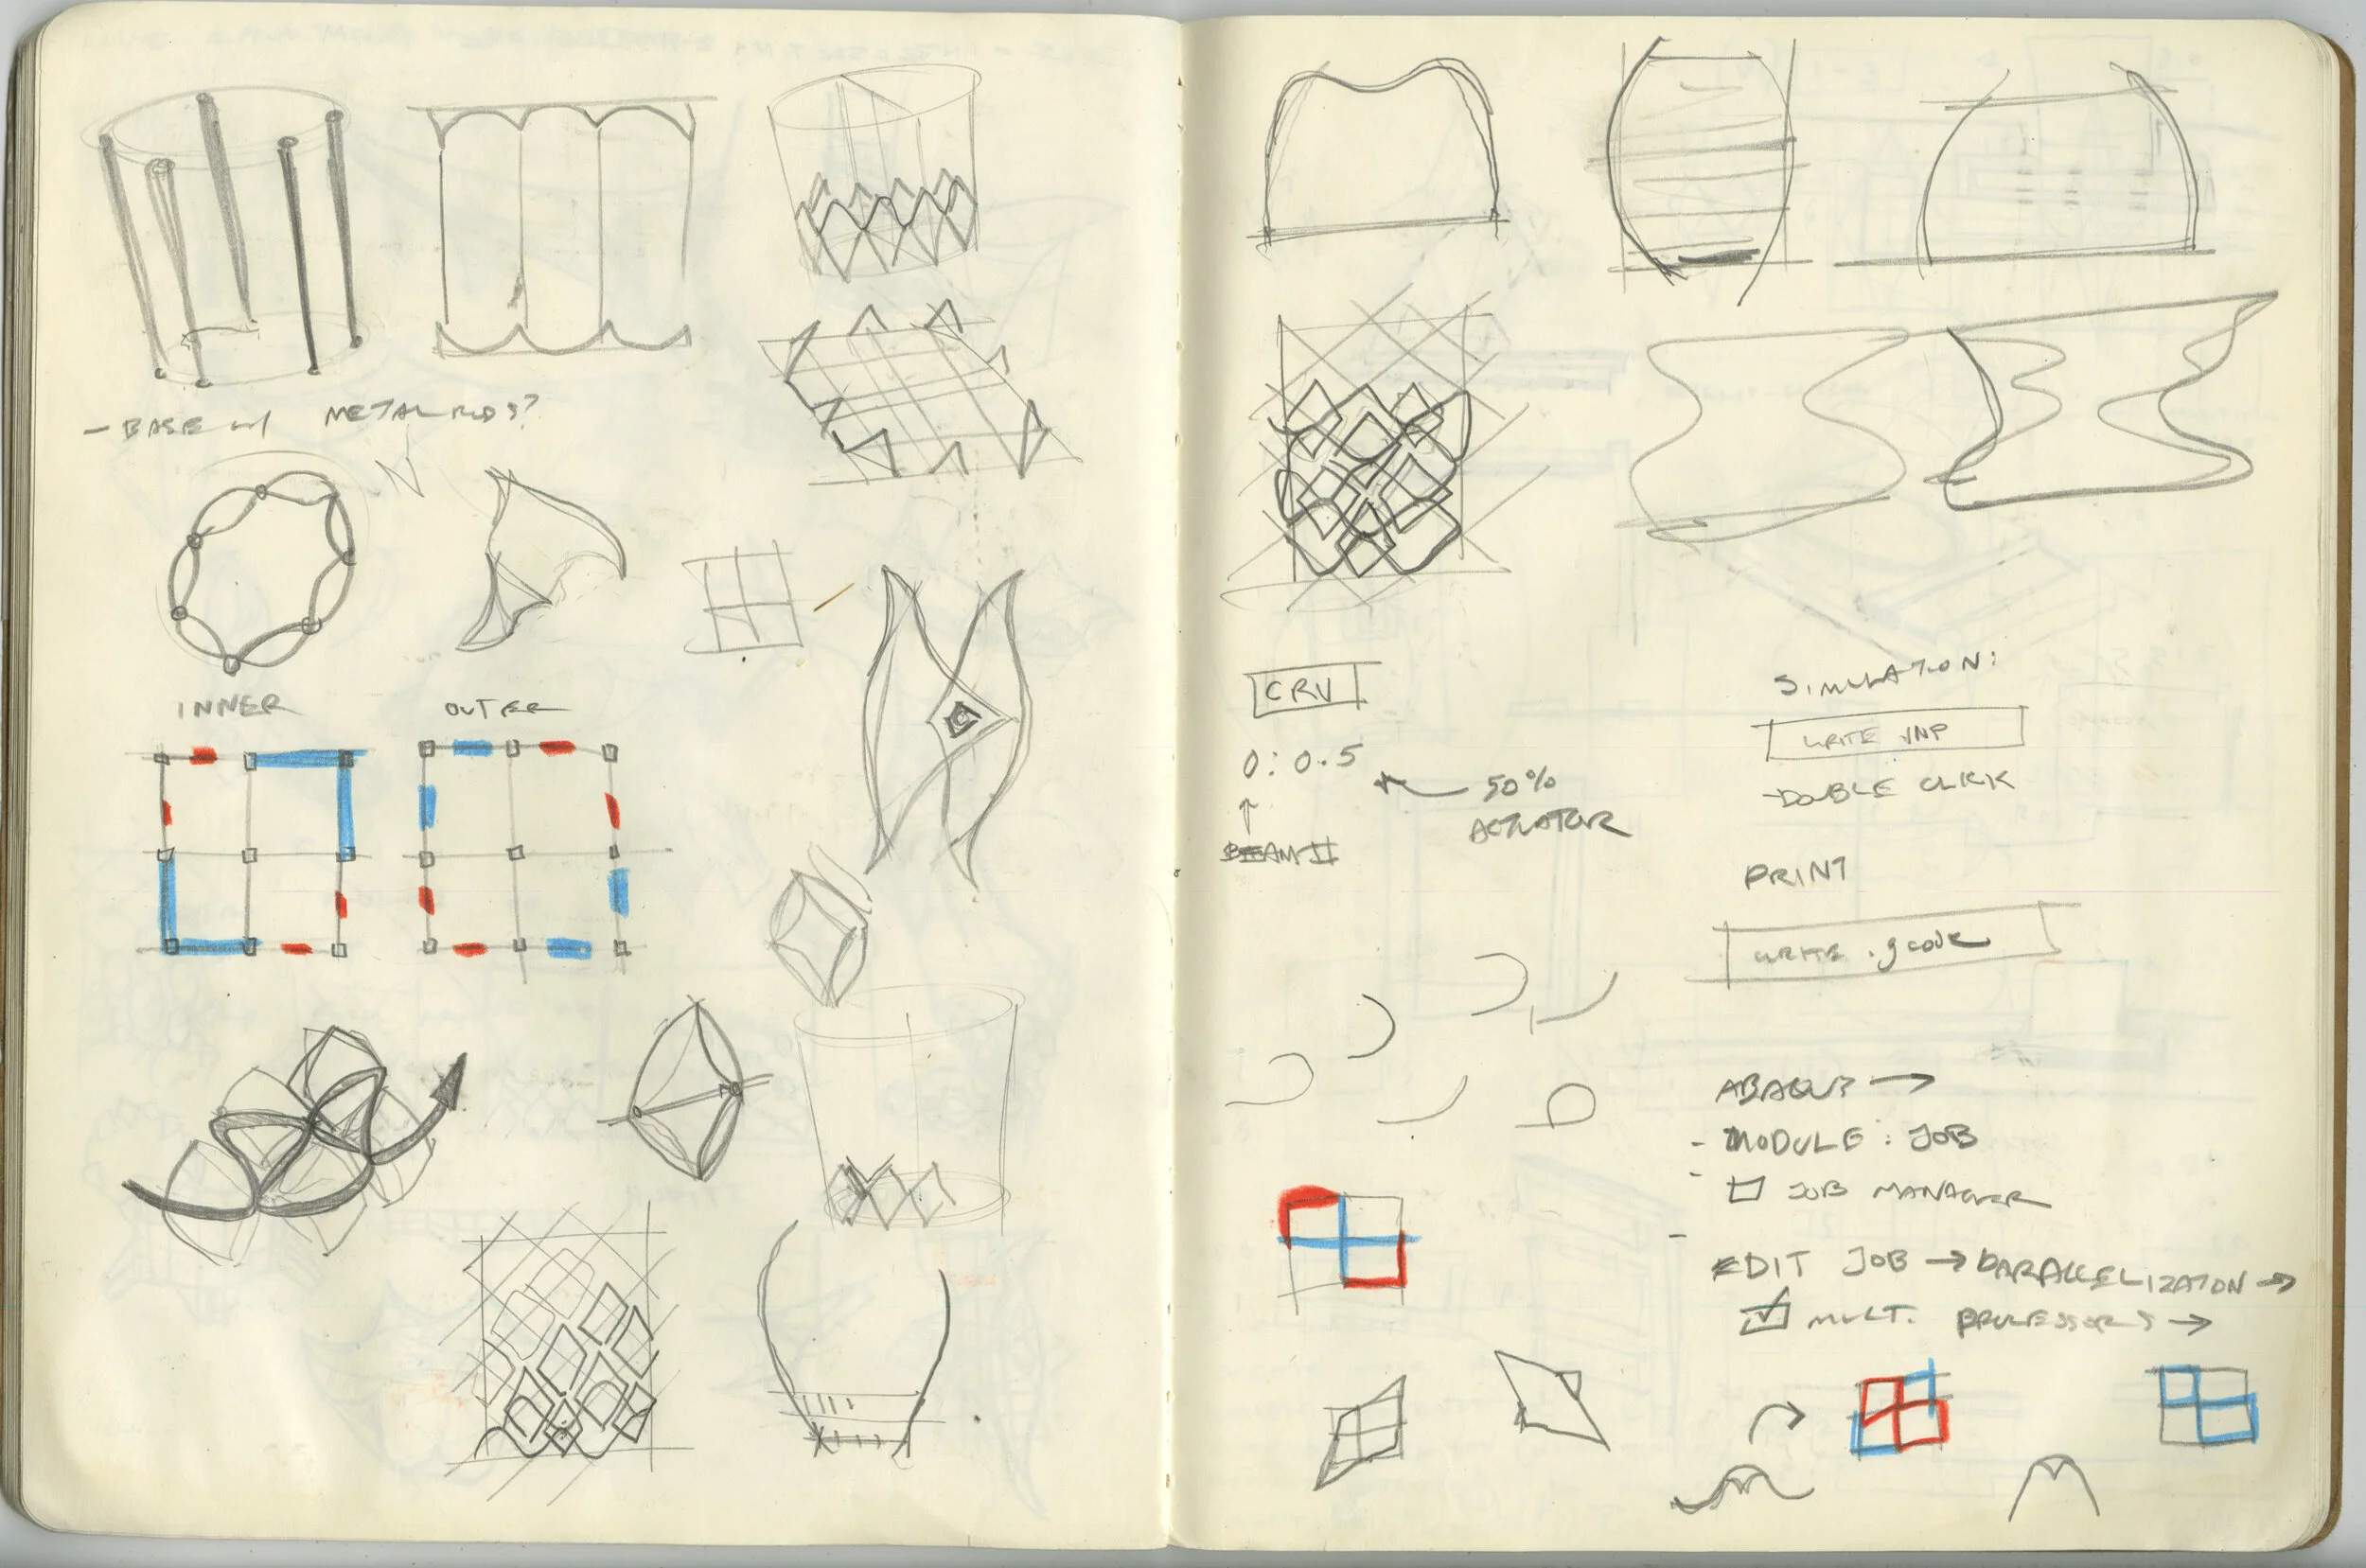 - BASE W/ METAL RODS?
INNER
OUTER
CRV
0: 0.5
50%
ACTUATOR
BEAM
SIMULATION:
WRITE INP
- DOUBLE CLICK
PRINT
WRITE .gcode
ABAQUS →
- MODULE : JOB
- □ JOB MANAGER
EDIT JOB → PARALLELIZATION →
☑ MULT. PROCESSORS →